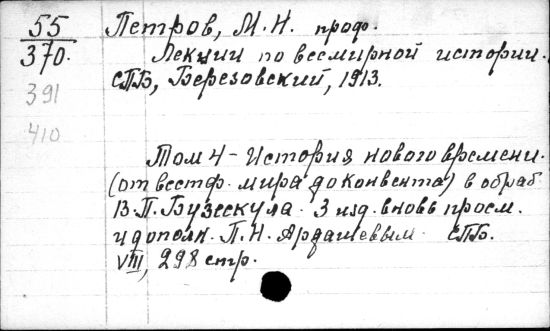 55
370.
391
410
Петров, М. Н. проф.
Лекции по всемирной истории.
СПБ, Березовский, 1913.
Том 4 - История нового времени.
(от вестф. мира до конвента) в обраб.
В. П. Бузескула. 3 изд. вновь просм.
и дополн. П. Н. Ардашевым. СПБ.
VIII, 298 стр.